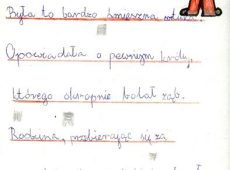 Była to bardzo śmieszna
Opowiadała o pewnym królu,
którego okropnie bolał ząb.
Rodzina, przebierając się za